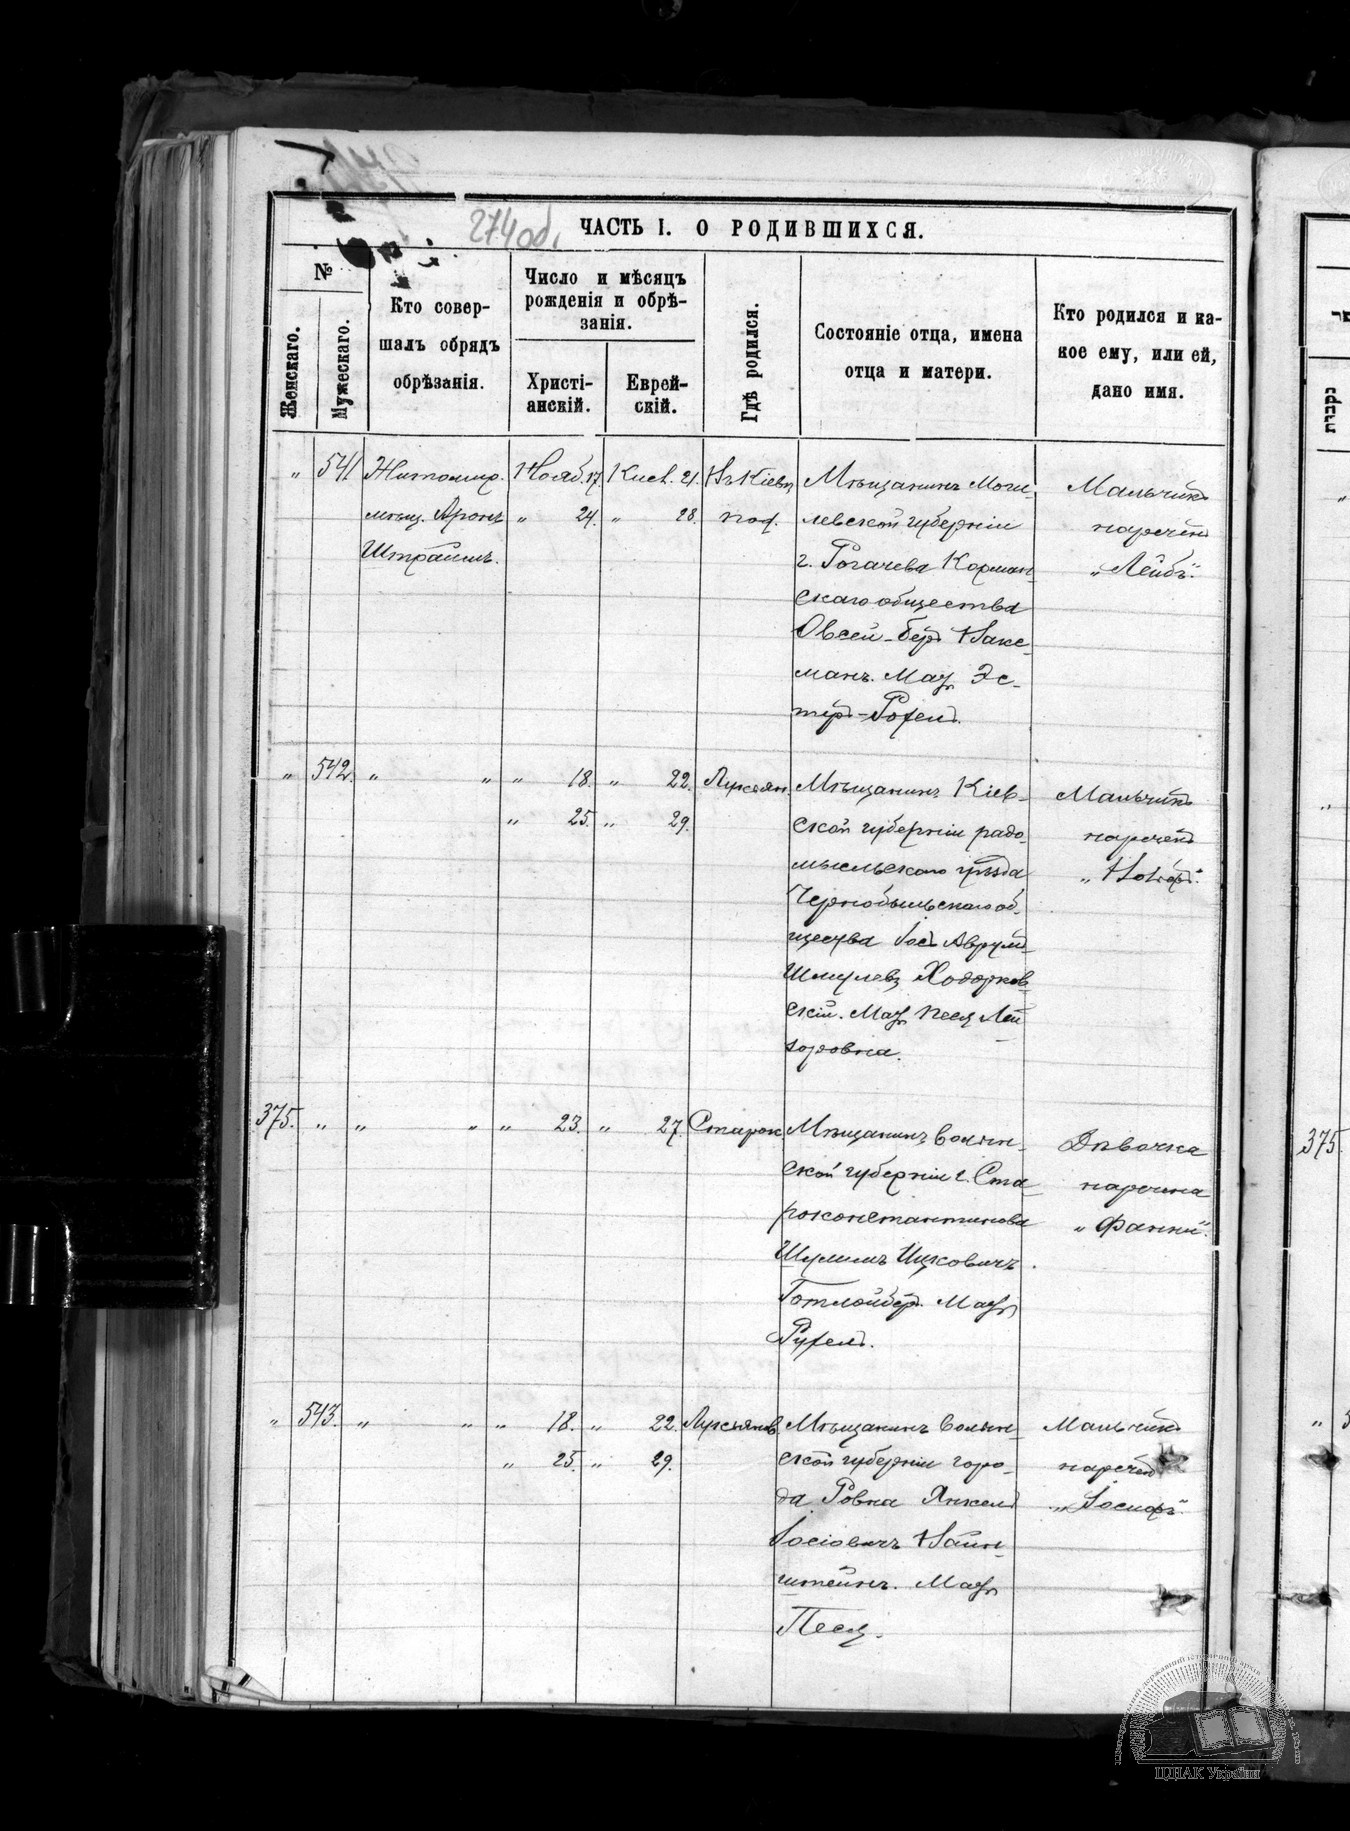 274 об.
ЧАСТЬ I. О РОДИВШИХСЯ.
№
Женскаго.
Мужескаго.
Кто совер-
шалъ обрядъ
обрѣзанія.
Число и мѣсяцъ
рожденія и обрѣ-
занія.
Христі-
анскій.
Еврей-
скій.
Гдѣ родился.
Состояніе отца, имена
отца и матери.
Кто родился и ка-
кое ему, или ей,
дано имя.
" 541. Житомир. Нояб. 17. Кисл. 21. Въ Кіевѣ
мѣщ. Аронъ " 24. " 28. под.
Штраимъ.
Мѣщанинъ Моги-
левской губерніи
г. Рогачева Корман-
скаго общества
Овсей-Беръ Вакс-
манъ. Мать Эс-
теръ-Рохель.
Мальчикъ
нареченъ
„Лейбъ".
" 542. " " " 18. " 22. Лукьян.
" 25. " 29.
Мѣщанинъ Кіев-
ской губерніи радо-
мысльскаго уѣзда
Чернобыльскаго об-
щества Іось Аврумъ
Шмулевъ Ходорков-
скій. Мать Песя Лей-
зоровна.
Мальчикъ
нареченъ
375. " " " " 23. " 27. Старок.
Мѣщанинъ Волын-
ской губерніи г. Ста-
роконстантинова
Шулимъ Ицковичъ
Готлойберъ. Мать
Рухель.
Дѣвочка
наречена
„Фанни".
375.
" 543. " " " 18. " 22. Лукьянов.
" 25. " 29.
Мѣщанинъ Волын-
ской губерніи горо-
да Ровна Янкель
Іосіовичъ Вайн-
штейнъ. Мать
Песя.
Мальчикъ
нареченъ
„Іосифъ".
ЦДІАК України